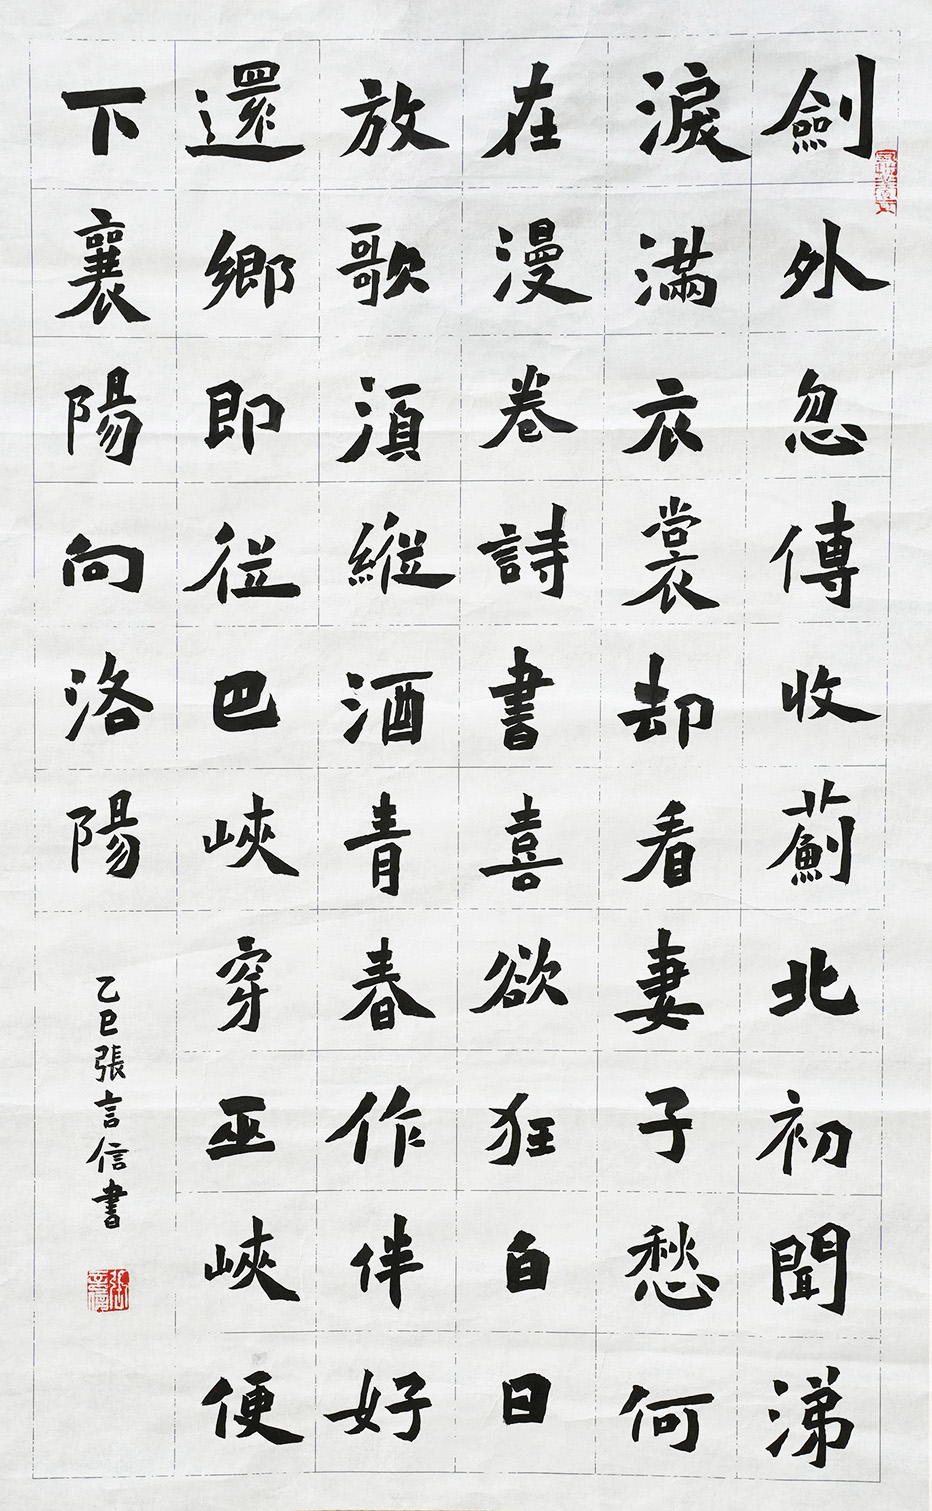 劍外忽傳收薊北初聞涕
淚滿衣裳却看妻子愁何
在漫卷詩書喜欲狂白日
放歌湏縱酒青春作伴好
還鄉即從巴峽穿巫峽便
下襄陽向洛陽
乙巳張言信書